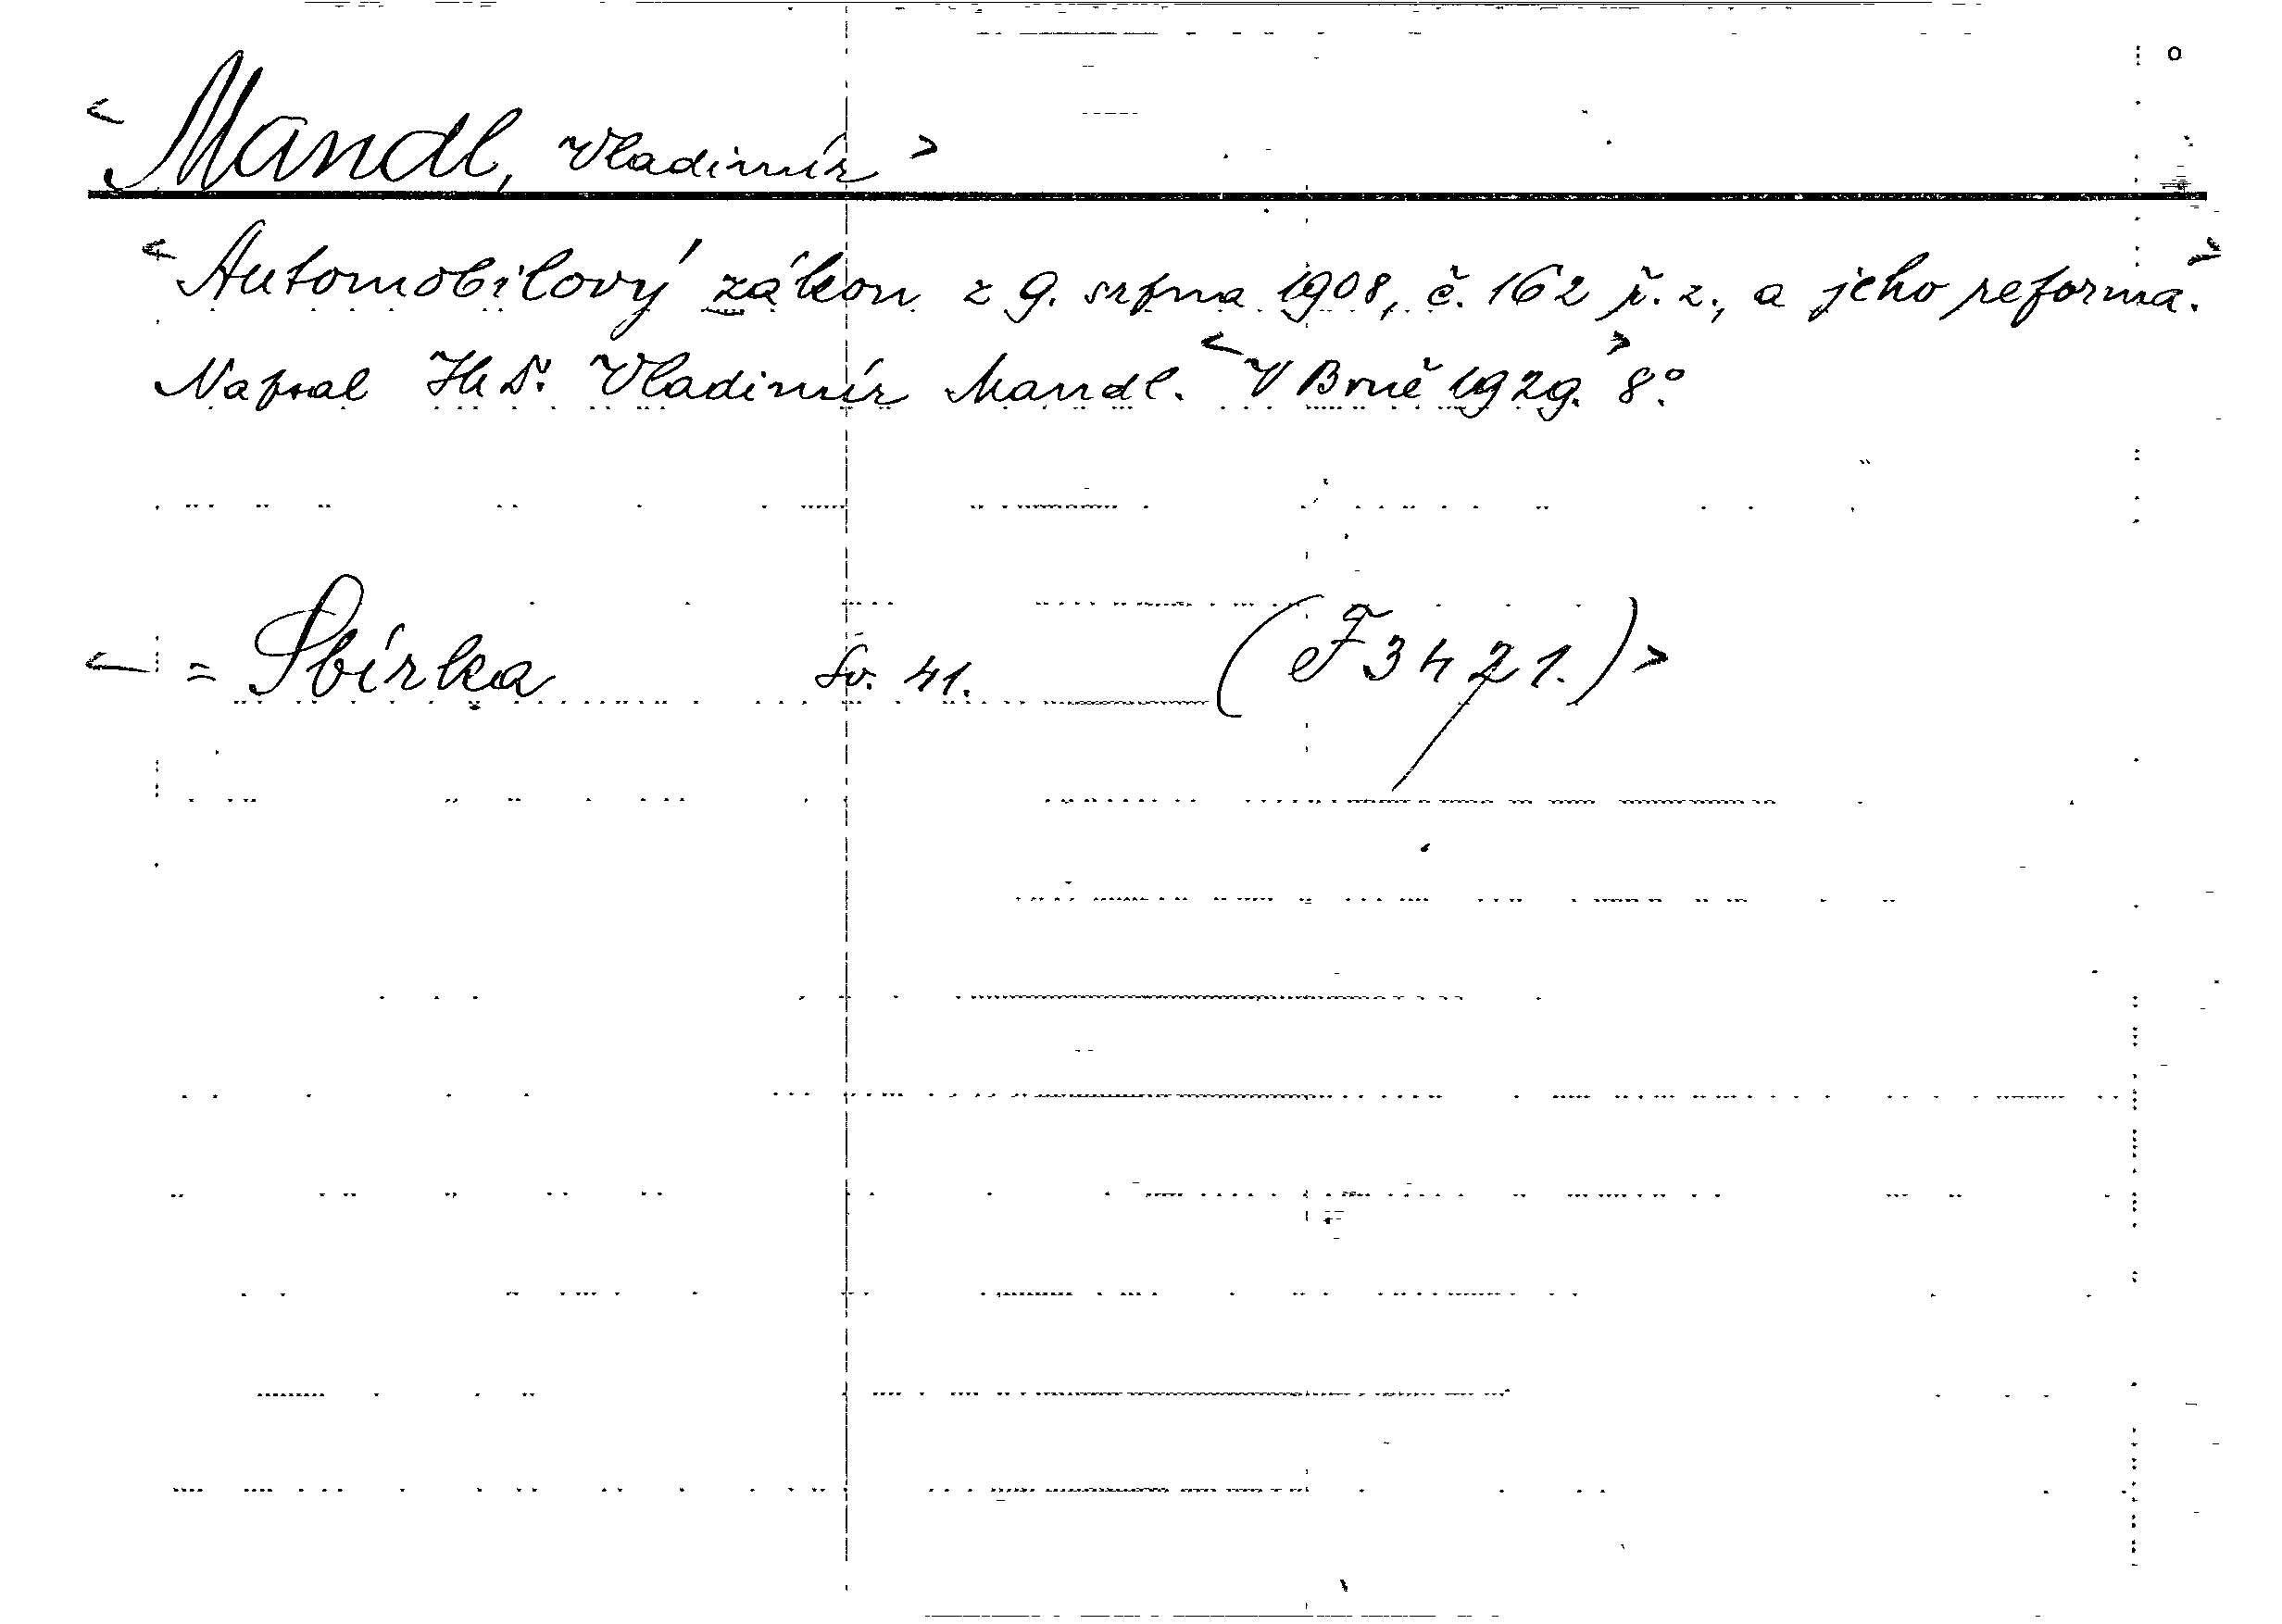 <Mandl, Vladimír>
<Automobilový zákon z 9. srpna 1908, č. 162 ř. z., a jeho reforma.>
Napsal JUDr. Vladimír Mandl. <V Brně 1929.> 8°.
<= Sbírka Sv. 41. (F 3421.)>